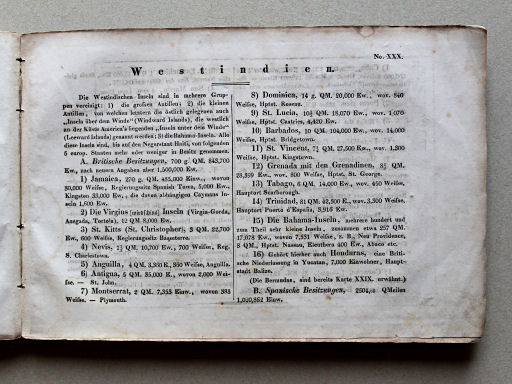 No. XXX.
Westindien.
Die Westindischen Inseln sind in mehrere Grup-
pen vereinigt: 1) die großen Antillen; 2) die kleinen
Antillen, von welchen letztern die östlich gelegenen auch
„Inseln über dem Winde" (Windward Islands), die westlich
an der Küste America's liegenden „Inseln unter dem Winde"
(Leeward Islands) genannt werden; 3) die Bahama-Inseln. Alle
diese Inseln sind, bis auf den Negerstaat Haiti, von folgenden
europ. Staaten mehr oder weniger in Besitz genommen.
A. Britische Besitzungen, 700 g. QM. 843,700
Ew., nach neuern Angaben aber 1,500,000 Ew.
1) Jamaica, 270 g. QM. Einw., wovon
Weiße, Regierungssitz Spanish Town, 5,000 Ew.,
Kingston 33,000 Ew., die davon abhängigen Caymans
Inseln 1,600 Ew.
2) Die Virgins Inseln (Virgin-Gorda,
Anegada, Tortola), QM. 8,000 Ew.
3) St. Kitts (St. Christopher), QM. 22,700
Ew., 600 Weiße, Regierungssitz Basseterre.
4) Nevis, QM. 10,200 Ew., 700 Weiße, Reg.
S. Charlestown.
5) Anguilla, 4 QM. Ew., Weiße, Anguilla.
6) Antigua, 5 QM. 35,000 E., wovon 2,000 Wei-
ße. — St. John.
7) Montserrat, 2 QM. Einw., wovon
Weiße. — Plymouth.
8) Dominica, 14 g. QM. 20,000 Ew., wor. 840
Weiße, Hptst. Roseau.
9) St. Lucia, QM. 18,070 Ew., wor. 1,070
Weiße, Hptst. Castries, 4,420 Ew.
10) Barbados, 10 QM. 104,000 Ew., wor. 14,000
Weiße, Hptst. Bridgetown.
11) St. Vincent, QM. 27,500 Ew., wor. 1,300
Weiße, Hptst. Kingstown.
12) Grenada mit den Grenadinen, QM.
Ew., wor. 800 Weiße, Hptst. St. George.
13) Tabago, 6 QM. 14,000 Ew., wor. 450 Weiße,
Hauptort Scarborough.
14) Trinidad, QM. Ew., wor. 3,300 Weiße,
Hauptort Puerto d'España,
15) Die Bahama-Inseln, mehrere hundert und
zum Theil sehr kleine Inseln, zusammen etwa 257 QM.
17,073 Ew., wovon 7,551 Weiße, z. B., Neu Providence,
8 QM. Hptst. Nassau, Eleuthera 400 Ew., Abaco etc.
16) Gehört hieher auch Honduras, eine Briti-
sche Niederlassung in Yucatan, 7,000 Einwohner, Haupt-
stadt Balize.
(Die Bermudas, sind bereits Karte XXIX. erwähnt.)
B. Spanische Besitzungen, QMeilen
Einw.